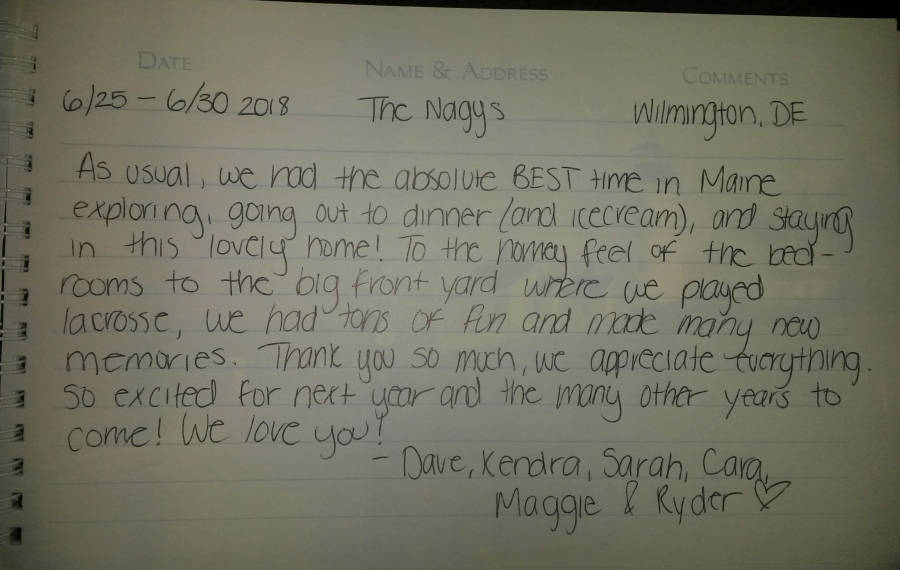 DATE NAME & ADDRESS COMMENTS
6/25 - 6/30 2018 The Nagy's Wilmington, DE
As usual, we had the absolute BEST time in Maine
exploring, going out to dinner (and icecream), and staying
in this lovely home! To the homey feel of the bed-
rooms to the big front yard where we played
lacrosse, we had tons of fun and made many new
memories. Thank you so much, we appreciate everything.
So excited for next year and the many other years to
come! We love you!
- Dave, Kendra, Sarah, Cara,
Maggie & Ryder ♡